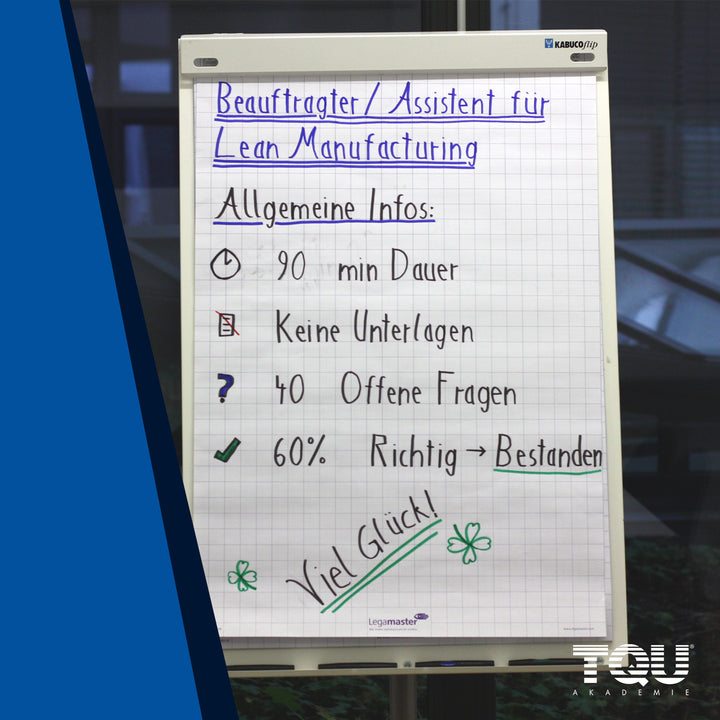 KABUCOflip
Beauftragter / Assistent für
Lean Manufacturing
Allgemeine Infos:
90 min Dauer
Keine Unterlagen
? 40 Offene Fragen
60% Richtig → Bestanden
Viel Glück!
Legamaster
TQU®
AKADEMIE